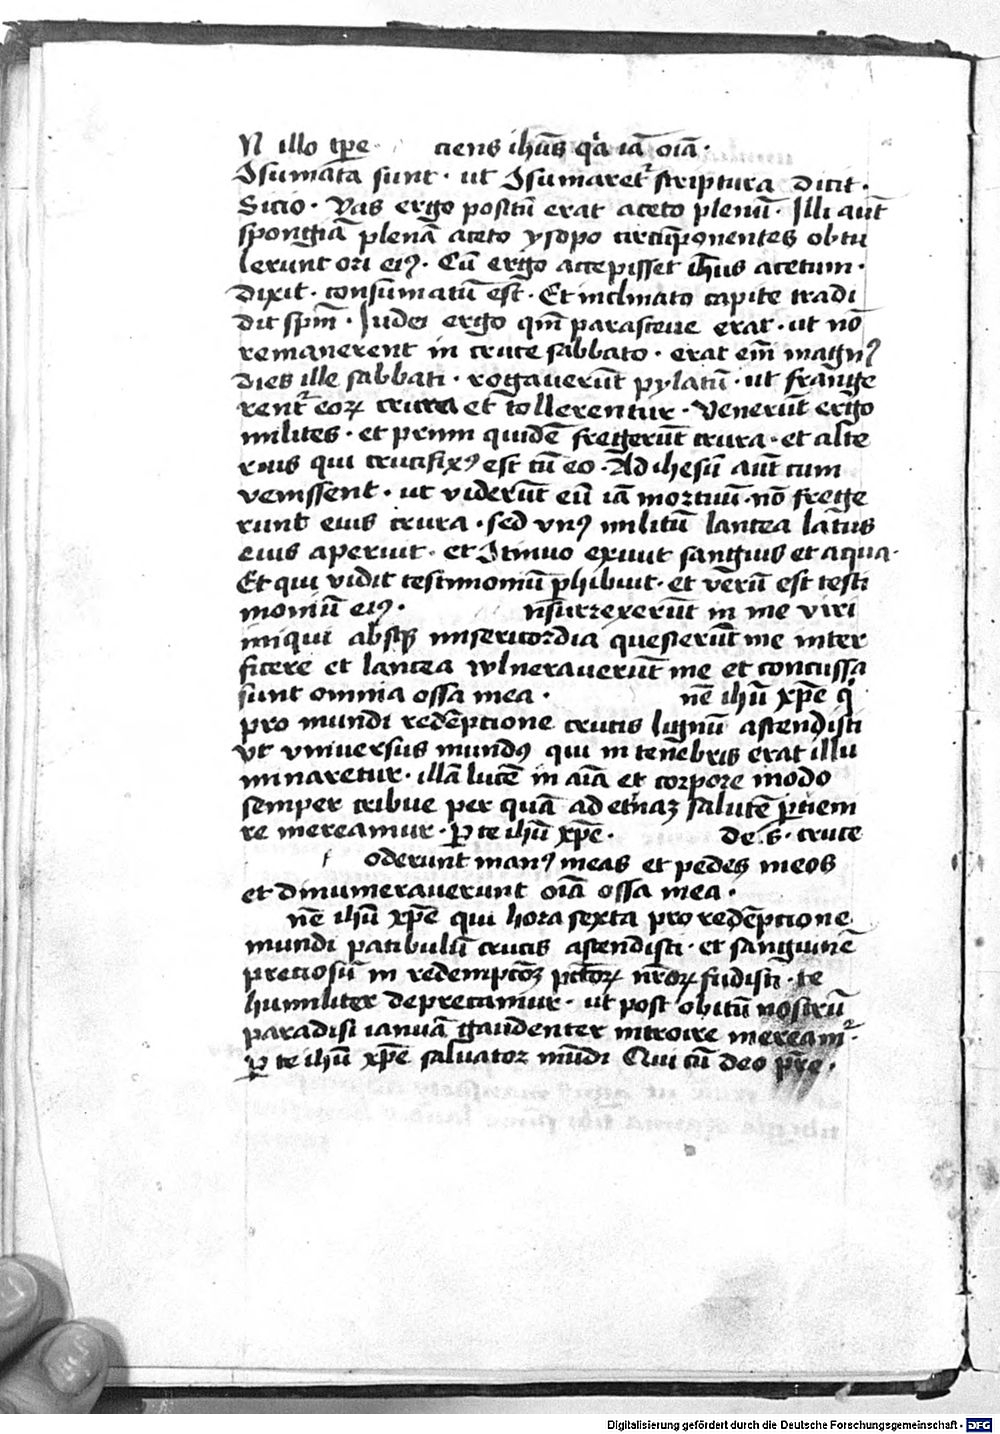 N illo tp̄e ciens ih̄us qͥa iā oīa·
Ɔsūmata sunt· ut Ɔsumaretᷣ scriptura dicit·
Sicio· Vas ergo positū erat aceto plenū· Illi aūt
spongiā plenā aceto ysopo circūponentes obtu
lerunt ori eiꝰ· Cū ergo accepisset ih̄us acetum·
dixit· consumatū est· Et inclinato capite tradi
dit spm̄· Iudei ergo qm̄ parasceue erat· ut nō
remanerent in cruce sabbato· erat em̄ magnꝰ
dies ille sabbati· rogauerūt pylatū· ut frange
rentᷣ eoꝝ crura et tollerentur· Venerūt ergo
milites· et primi quidē fregerūt crura· et alte
rius qui crucifixꝰ est cū eo· Ad ihesū aūt cum
venissent· ut viderūt eū iā mortuū· nō frege
runt eius crura· sed vnꝰ militū lancea latus
eius aperuit· et Ɔtinuo exiuit sanguis et aqua·
Et qui vidit testimoniū ꝑhibuit· et verū est testi
moniū eiꝰ· nsurrexerūt in me viri
iniqui absqꝫ misericordia quesierūt me inter
ficere et lancea wlnerauerūt me et concussa
sunt omnia ossa mea· nē ih̄u xp̄e qͥ
pro mundi redēptione crucis lignū ascendisti
vt vniuersus mundꝰ qui in tenebris erat illu
minaretur· illā lucē in aīa et corpore modo
semper tribue per quā ad etnaꝫ salutē ꝑuem
re mereamur· ꝑ te ih̄u xp̄e· de s· cruce
oderunt manꝰ meas et pedes meos
et dinumerauerunt oīa ossa mea·
nē ih̄u xp̄e qui hora sexta pro redēptione
mundi patibulū crucis ascendisti· et sanguinē
preciosū in redemptōeꝫ pctōꝝ nr̄oꝝ fudisti· te
humiliter deprecamur· ut post obitū nostrū
paradisi ianuā gaudenter introire mereamᷣ·
ꝑ te ih̄u xp̄e saluator mūdi Qui cū deo pr̄e·
Digitalisierung gefördert durch die Deutsche Forschungsgemeinschaft - DFG